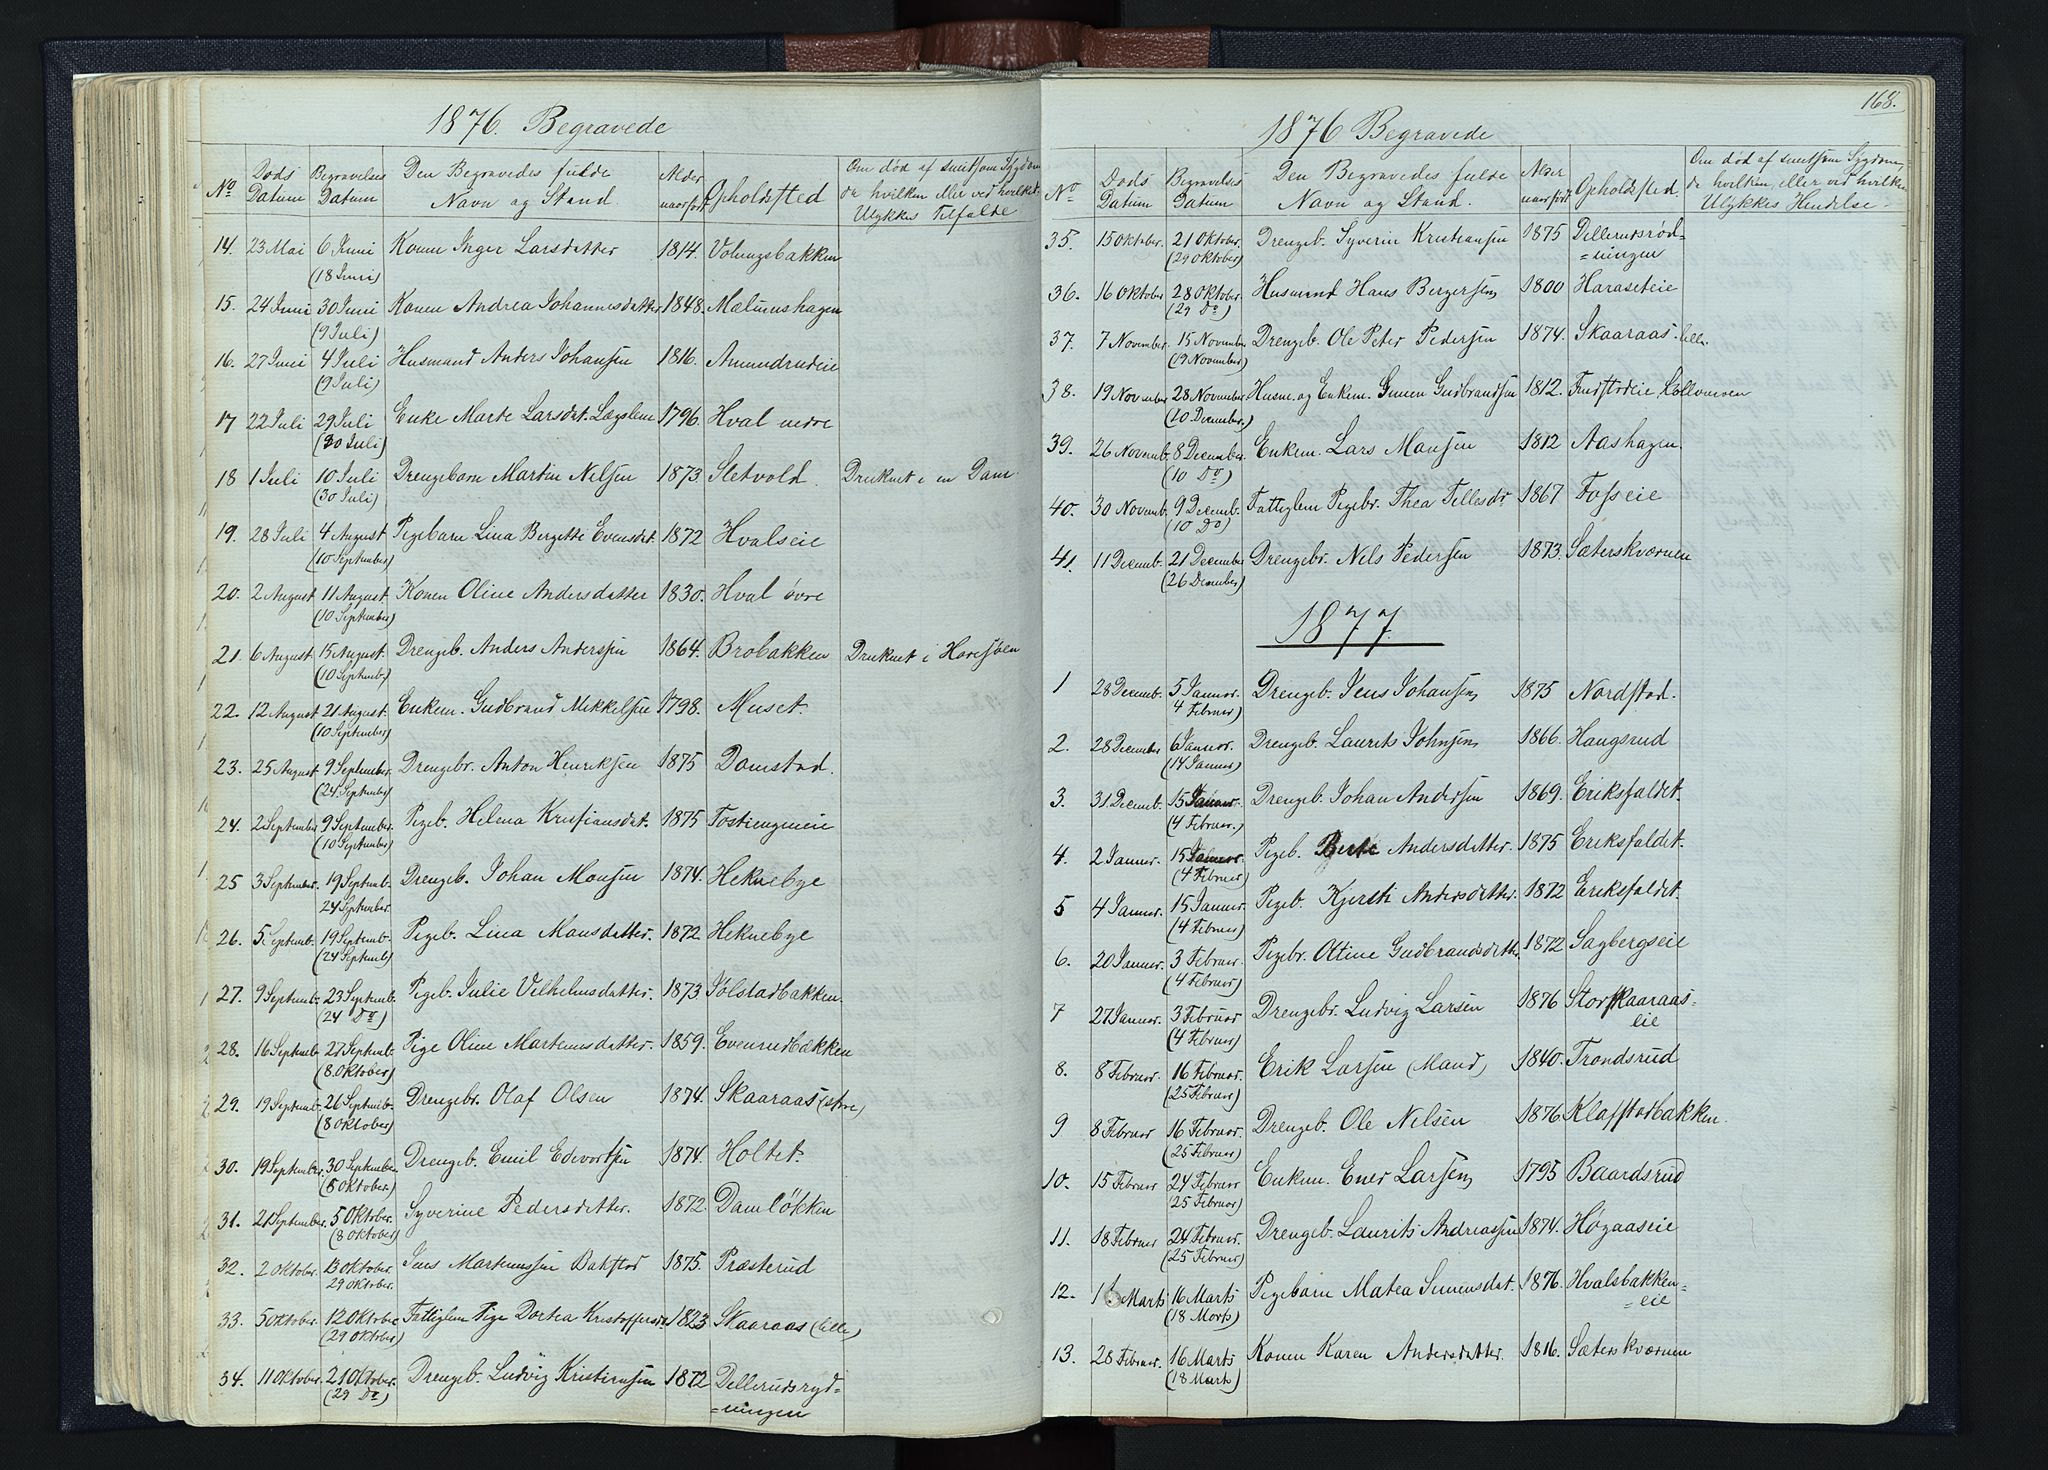 1876. Begravede
No
Døds Datum
Begravelses Datum
Den Begravedes fulde Navn og Stand.
Alder naar født
Opholdsted
Om død af smitsom Sygdom da hvilken eller ved hvilket Ulykkes Tilfælde
14. 23 Mai 6 Juni (18 Juni) Konen Inger Larsdatter 1814. Volungsbakken
15. 24 Juni 30 Juni (9 Juli) Konen Andrea Johannesdatter 1848. Mælumshagen
16. 27 Juni 4 Juli (9 Juli) Husmand Anders Johansen 1816. Amundrudeie
17 22 Juli 29 Juli (30 Juli) Enke Marte Larsdat. Lægslem 1796. Hval nedre
18 1 Juli 10 Juli (30 Juli) Drengebarn Martin Nilsen 1873. Sletvold. Druknet i en Dam.
19. 28 Juli 4 August (10 September) Pigebarn Lina Bergette Evensdat. 1872 Hvalseie
20. 2 August 11 August. (10 September) Konen Oline Andersdatter 1830. Hval övre
21. 6 August 15 August. (10 Septemb.) Drengeb. Anders Andersen 1864. Brobakken Druknet i Harasöen
22. 12 August 21 August. (10 September) Enkem. Gudbrand Mikkelsen 1798. Muset.
23. 25 August 9 September. (24 September) Drengebr. Anton Henriksen 1875 Damstad.
24. 2 September 9 September. (10 September) Pigeb. Helena Kristiansdat. 1875 Fostiengmeie
25 3 September. 19 Septemb. 24 September. Drengeb. Johan Monsen 1874. Heknebye
26. 5 Septemb. 19 Septemb. (24 Septemb) Pigeb. Lina Monsdatter. 1872 Heknebye
27. 9 Septemb. 23 Septemb. (24 Do) Pigeb. Julie Vilhelmsdatter. 1873 Jølstadbakken.
28. 16 Septemb. 27 Septemb. (8. Oktober) Pige Oline Martinusdatter. 1859. Evenrudbækken
29. 19 Septemb. 26 Septemb. (8 Oktober) Drengebr. Olaf Olsen 1874. Skaaraas (store)
30. 19 September. 30 September. (8 Oktober.) Drengeb. Emil Edvartsen 1874. Holtet.
31. 21 September. 5 Oktober. (8 Oktober) Syverine Pedersdatter. 1872. Damløkken
32. 2 Oktober. 13 Oktober. 29 Oktober. Jens Martinussen Bakstad 1875. Præsterud
33. 5 Oktober. 12 Oktober (29 Oktober) Fattiglem Pige Dortea Kristoffersd. 1823 Skaaraas (lille)
34. 11 Oktober. 21 Oktober. (29 Do) Drengeb. Ludvig Kristiansen 1872 Dellerudsryd=
=ningen
168.
1876 Begravede
No
Døds Datum
Begravelses Datum
Den Begravedes fulde Navn og Stand.
Alder naar født
Opholdsted.
Om død af smitsom Sygdom, da hvilken, eller ved hvilken Ulykkes Hendelse.
35. 15 Oktober. 21 Oktober. (29 Oktober) Drengeb. Syverin Kristiansen 1875 Dellerudsrød=
=ningen
36. 16 Oktober 28 Oktober. (29 Do) Husmand Hans Bergersen 1800 Haraseteie
37. 7 November. 15 November (19 November) Drengeb. Ole Peter Pedersen 1874. Skaaraas lille.
38. 19 November 28 November (10 December.) Husm. og Enkem. Simen Gudbrandsen 1812.
39. 26 Novemb. 8 December. (10 Do) Enkem. Lars Monsen 1812 Aashagen.
40. 30 Novemb. 9 Decemb. (10 Do) Fattiglem Pigebr. Thea Tillesdr 1867 Fosseie
41. 11 Decemb. 21 December (26 December) Drengebr. Nils Pedersen 1873. Sæterskværnen
1877.
1 28 Decemb. 5 Januar. 4 Februar) Drengeb. Jens Johansen 1875 Nordstad.
2. 28 December 6 Januar. (14 Januar) Drengeb. Laurits Johnsen 1866 Haugsrud
3. 31 Decemb. 15 Januar. (4 Februar.) Drengeb. Johan Andersen 1869. Eriksfaldet.
4. 2 Januar. 15 Januar (4 Februar) Pigeb. Berte Andersdatter. 1875 Eriksfaldet.
5 4 Januar. 15 Januar. (4 Februar) Pigeb. Kjersti Andersdatter. 1872 Eriksfaldet.
6. 20 Januar. 3 Februar. (4 Februar) Pigebr. Oltine Gudbrandsdatter. 1872 Sagbergseie
7 27 Januar. 3 Februar (4 Februar) Drengebr. Ludvig Larsen 1876 Storskaaraas=
eie
8. 8 Februar. 16 Februar. (25 Februar) Erik Larsen (Mand) 1840. Trondsrud
9 8 Februar 16 Februar. (25 Februar) Drengeb. Ole Nilsen 1876. Klafstadbakken.
10. 15 Februar 24 Februar (25 Februar) Enkem. Ener Larsen 1795 Baardsrud
11. 18 Februar 24 Februar. (25 Februar) Drengeb. Laurits Andreassen 1874. Høgaaseie
12. Marts 16 Marts (18 Marts) Pigebarn Matea Simensdat. 1876. Hvalsbakken=
=eie
13. 28 Februar. 16 Marts (18 Mart) Konen Karen Andersdatter. 1816. Sæterskværnen